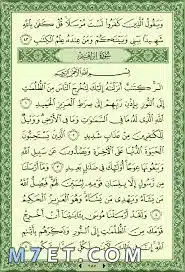 وَيَقُولُ ٱلَّذِينَ كَفَرُوا۟ لَسْتَ مُرْسَلًا قُلْ كَفَىٰ بِٱللَّهِ
شَهِيدًۢا بَيْنِى وَبَيْنَكُمْ وَمَنْ عِندَهُۥ عِلْمُ ٱلْكِتَٰبِ ٤٣
سُورَةُ إِبْرَاهِيمَ
بِسْمِ ٱللَّهِ ٱلرَّحْمَٰنِ ٱلرَّحِيمِ
الٓر كِتَٰبٌ أَنزَلْنَٰهُ إِلَيْكَ لِتُخْرِجَ ٱلنَّاسَ مِنَ ٱلظُّلُمَٰتِ
إِلَى ٱلنُّورِ بِإِذْنِ رَبِّهِمْ إِلَىٰ صِرَٰطِ ٱلْعَزِيزِ ٱلْحَمِيدِ ١
ٱللَّهِ ٱلَّذِى لَهُۥ مَا فِى ٱلسَّمَٰوَٰتِ وَمَا فِى ٱلْأَرْضِ وَوَيْلٌ
لِّلْكَٰفِرِينَ مِنْ عَذَابٍ شَدِيدٍ ٢ ٱلَّذِينَ يَسْتَحِبُّونَ
ٱلْحَيَوٰةَ ٱلدُّنْيَا عَلَى ٱلْءَاخِرَةِ وَيَصُدُّونَ عَن سَبِيلِ ٱللَّهِ
وَيَبْغُونَهَا عِوَجًا أُو۟لَٰٓئِكَ فِى ضَلَٰلٍۭ بَعِيدٍ ٣ وَمَآ أَرْسَلْنَا
مِن رَّسُولٍ إِلَّا بِلِسَانِ قَوْمِهِۦ لِيُبَيِّنَ لَهُمْ فَيُضِلُّ ٱللَّهُ
مَن يَشَآءُ وَيَهْدِى مَن يَشَآءُ وَهُوَ ٱلْعَزِيزُ ٱلْحَكِيمُ ٤
وَلَقَدْ أَرْسَلْنَا مُوسَىٰ بِـَٔايَٰتِنَآ أَنْ أَخْرِجْ
قَوْمَكَ مِنَ ٱلظُّلُمَٰتِ إِلَى ٱلنُّورِ
M7ET.COM
٢٥٥